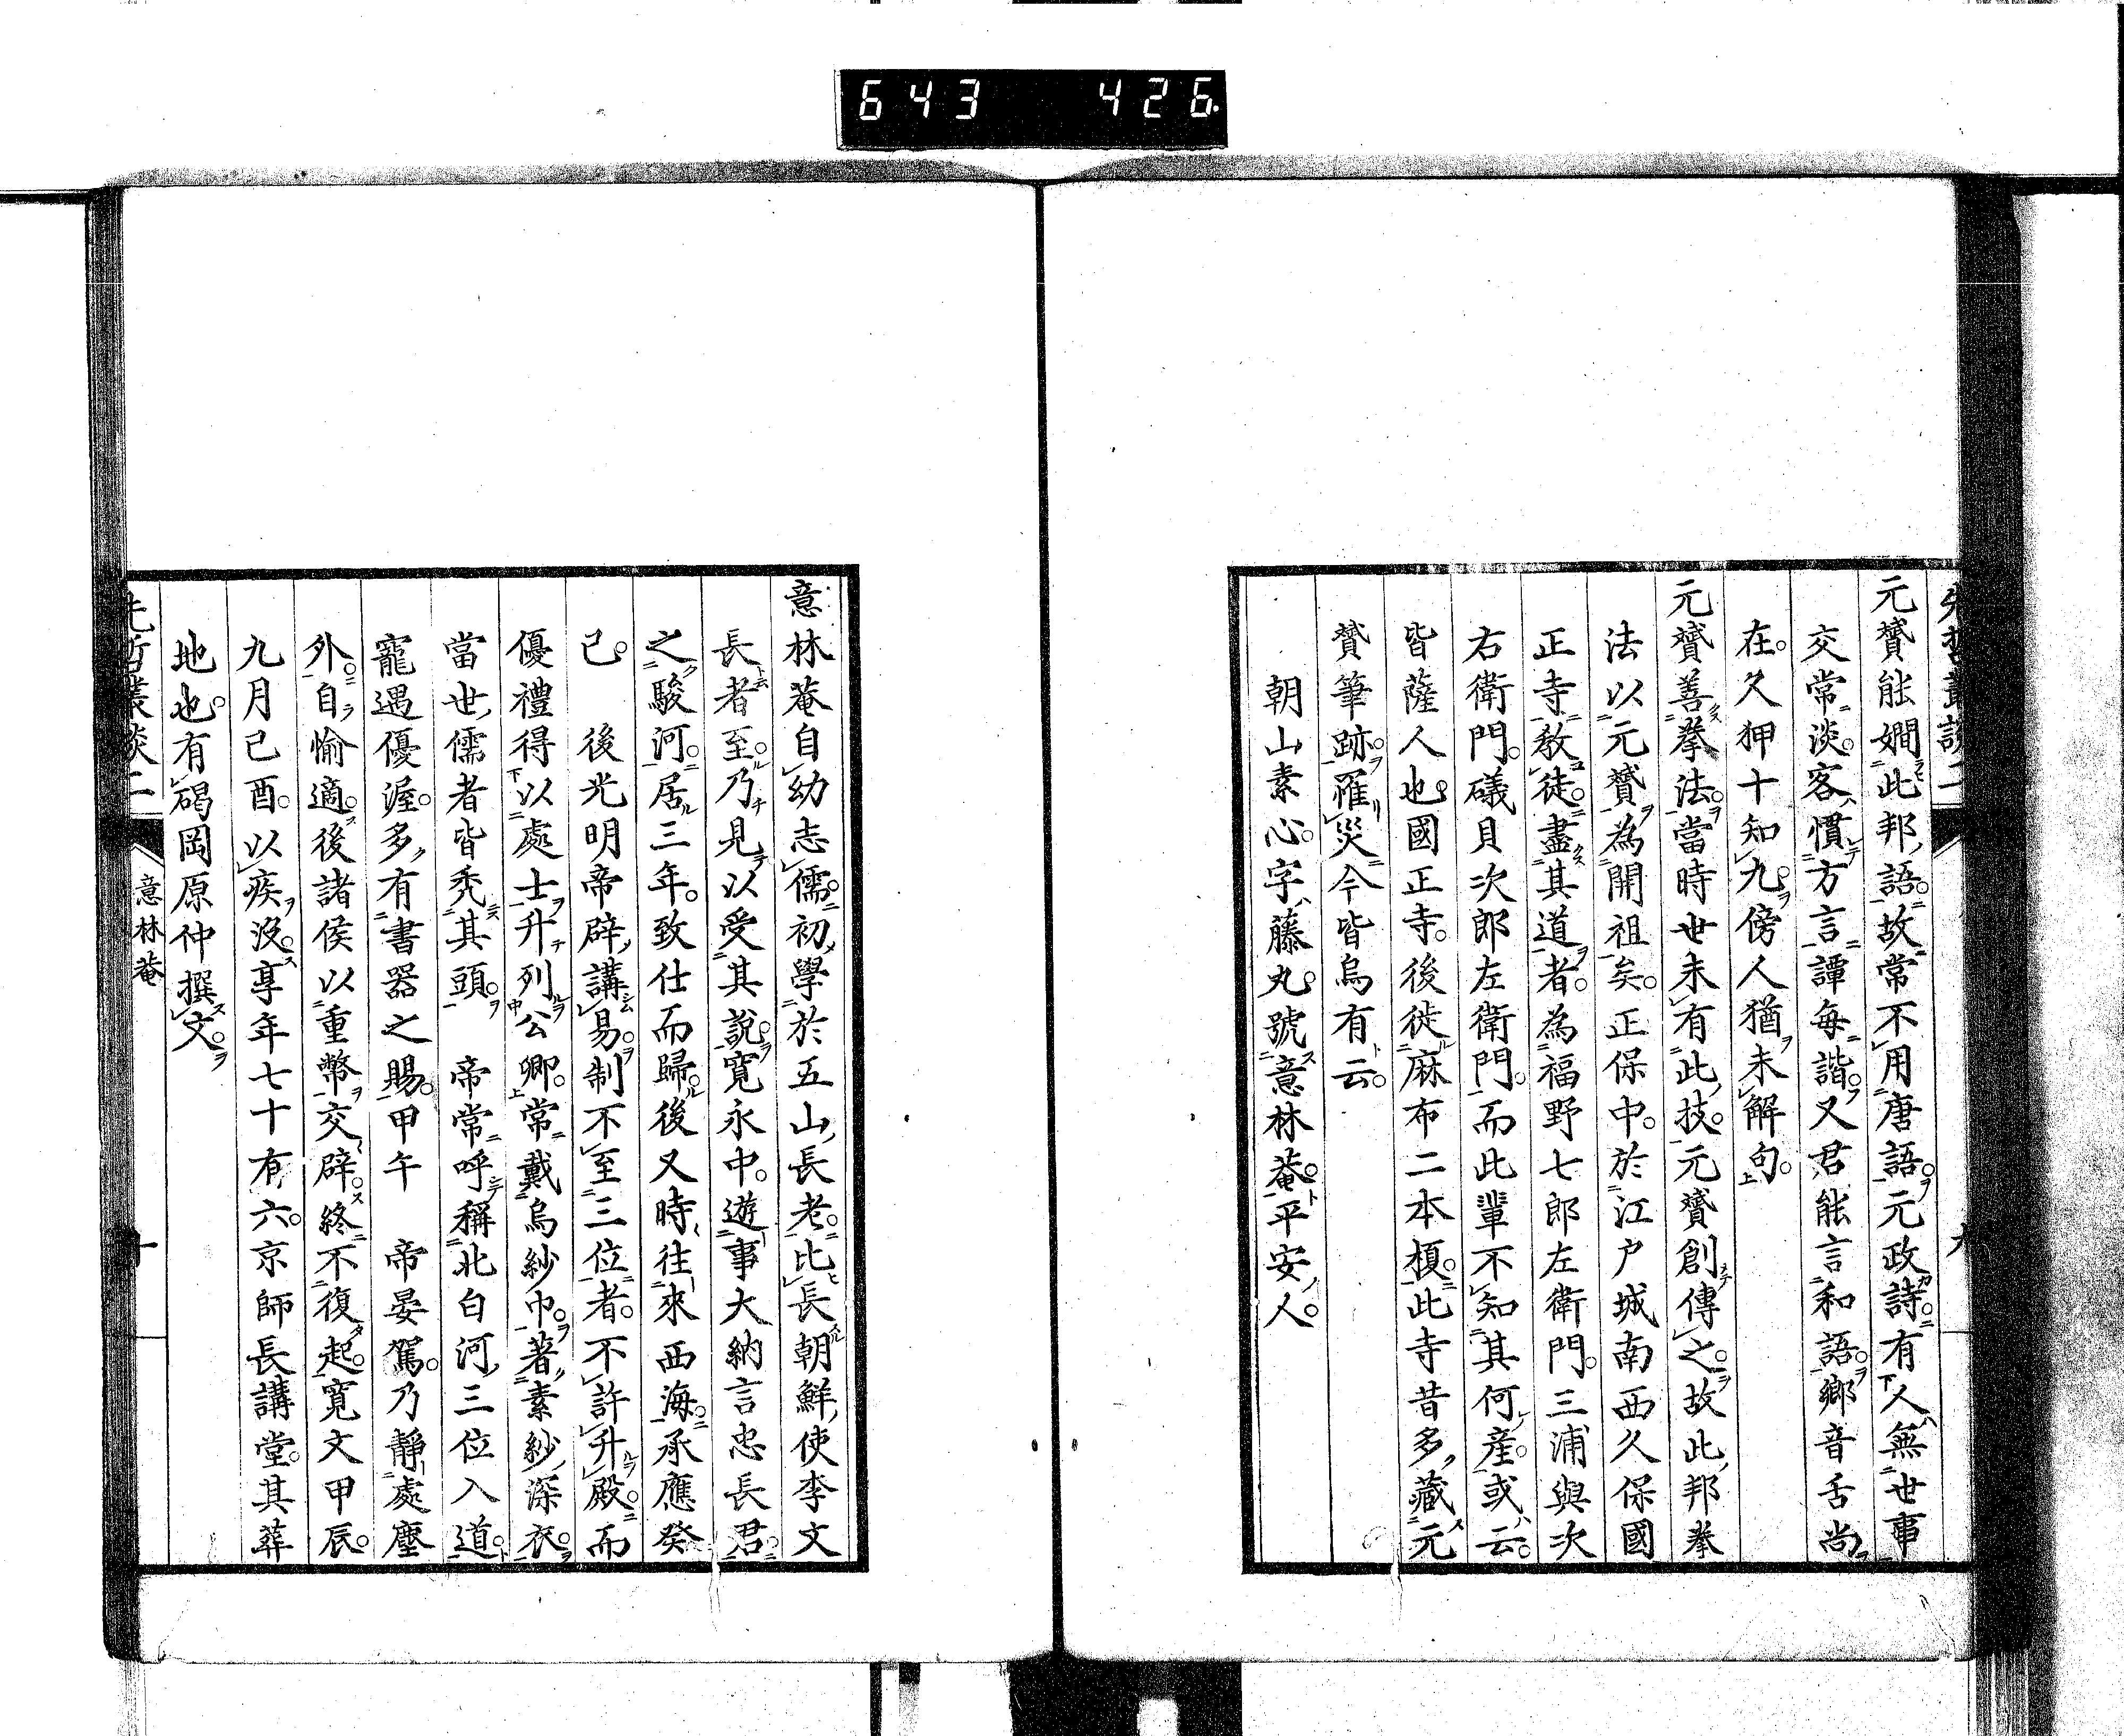 643 426
先哲叢談二
九
元贇能嫺此邦語故常不用唐語元政詩有人無世事
交常淡客慣方言譚每諧又君能言和語鄉音舌尚
在久狎十知九傍人猶未解句
元贇善拳法當時世未有此技元贇創傳之故此邦拳
法以元贇為開祖矣正保中於江戶城南西久保國
正寺教徒盡其道者為福野七郎左衛門三浦與次
右衛門礒貝次郎左衛門而此輩不知其何產或云
皆薩人也國正寺後徙麻布二本榎此寺昔多藏元
贇筆跡罹災今皆烏有云
朝山素心字藤丸號意林菴平安人
意林菴自幼志儒初學於五山長老比長朝鮮使李文
長者至乃見以受其說寬永中遊事大納言忠長君
之駿河居三年致仕而歸後又時往來西海承應癸
巳 後光明帝辟講易制不至三位者不許升殿而
優禮得以處士升列公卿常戴烏紗巾著素紗深衣
當世儒者皆禿其頭 帝常呼稱北白河三位入道
寵遇優渥多有書器之賜甲午 帝晏駕乃靜處塵
外自愉適後諸侯以重幣交辟終不復起寬文甲辰
九月己酉以疾沒享年七十有六京師長講堂其葬
地也有碣岡原仲撰文
先哲叢談二
意林菴
十